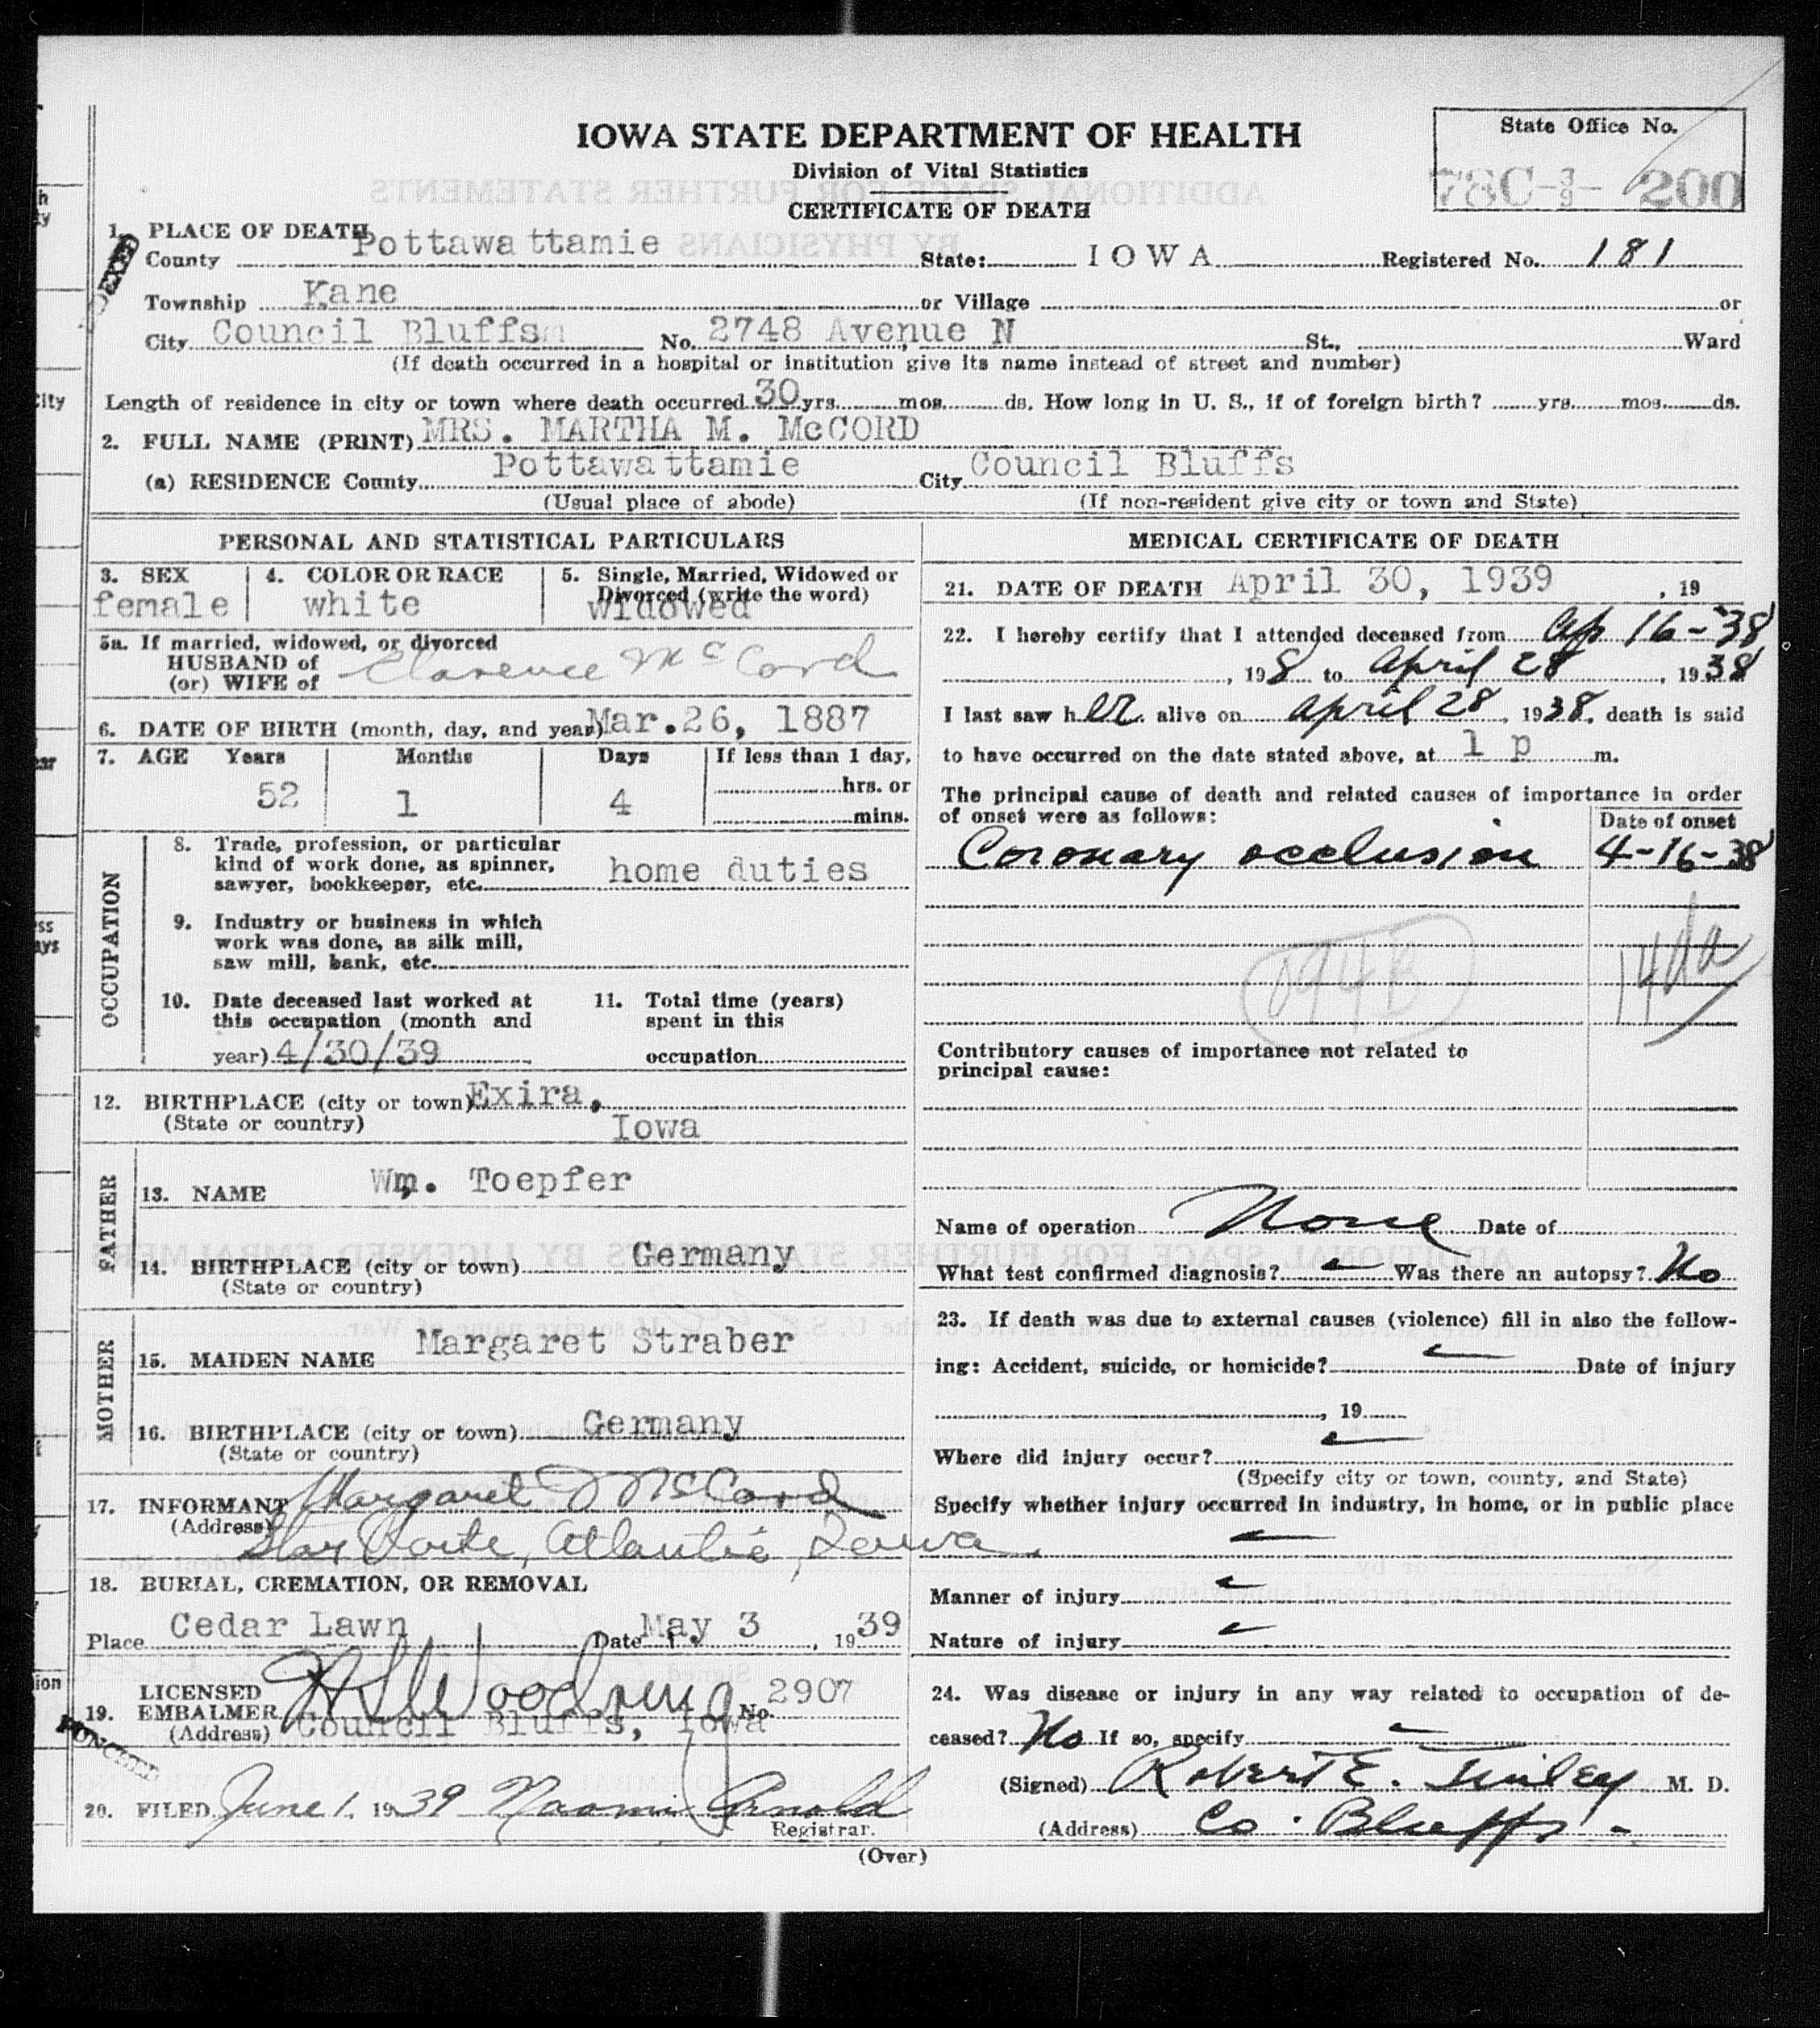 IOWA STATE DEPARTMENT OF HEALTH
Division of Vital Statistics
CERTIFICATE OF DEATH
State Office No.
78C-3/9- 200
1. PLACE OF DEATH
County Pottawattamie State: IOWA Registered No. 181
Township Kane or Village or
City Council Bluffs No. 2748 Avenue N St., Ward
(If death occurred in a hospital or institution give its name instead of street and number)
Length of residence in city or town where death occurred 30 yrs. mos. ds. How long in U. S., if of foreign birth? yrs. mos. ds.
2. FULL NAME (PRINT) MRS. MARTHA M. McCORD
(a) RESIDENCE County Pottawattamie City Council Bluffs
(Usual place of abode) (If non-resident give city or town and State)
PERSONAL AND STATISTICAL PARTICULARS
3. SEX female
4. COLOR OR RACE white
5. Single, Married, Widowed or Divorced (write the word) widowed
5a. If married, widowed, or divorced
HUSBAND of
(or) WIFE of Clarence McCord
6. DATE OF BIRTH (month, day, and year) Mar. 26, 1887
7. AGE Years Months Days If less than 1 day,
52 1 4 hrs. or
mins.
OCCUPATION
8. Trade, profession, or particular
kind of work done, as spinner,
sawyer, bookkeeper, etc. home duties
9. Industry or business in which
work was done, as silk mill,
saw mill, bank, etc.
10. Date deceased last worked at
this occupation (month and
year) 4/30/39
11. Total time (years)
spent in this
occupation
12. BIRTHPLACE (city or town) Exira,
(State or country) Iowa
FATHER
13. NAME Wm. Toepfer
14. BIRTHPLACE (city or town) Germany
(State or country)
MOTHER
15. MAIDEN NAME Margaret Straber
16. BIRTHPLACE (city or town) Germany
(State or country)
17. INFORMANT Margaret J McCord
(Address) Star Route, Atlantic, Iowa
18. BURIAL, CREMATION, OR REMOVAL
Place Cedar Lawn Date May 3, 1939
19. LICENSED
EMBALMER Woodring No. 2907
(Address) Council Bluffs, Iowa
20. FILED June 1, 1939 Naomi Arnold
Registrar.
MEDICAL CERTIFICATE OF DEATH
21. DATE OF DEATH April 30, 1939, 19
22. I hereby certify that I attended deceased from Ap 16-38
, 198 to April 28, 1938
I last saw her alive on April 28, 1938, death is said
to have occurred on the date stated above, at 1 p m.
The principal cause of death and related causes of importance in order
of onset were as follows: Date of onset
Coronary occlusion 4-16-38
094B 14da
Contributory causes of importance not related to
principal cause:
Name of operation None Date of
What test confirmed diagnosis? Was there an autopsy? No
23. If death was due to external causes (violence) fill in also the follow-
ing: Accident, suicide, or homicide? Date of injury
, 19
Where did injury occur?
(Specify city or town, county, and State)
Specify whether injury occurred in industry, in home, or in public place
Manner of injury
Nature of injury
24. Was disease or injury in any way related to occupation of de-
ceased? No If so, specify
(Signed) Robert E. Finley M. D.
(Address) Co. Bluffs.
(Over)